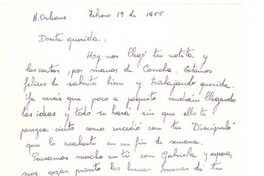 N. Orleans Febrero 19 de 1955
Dorita querida:
Hoy nos llegó tu notita y
las cartas, por manos de Concha. Estamos
felices de saberte bien y trabajando querida.
Ya verás que poco a poquito vendrán llegando
las ideas y todo se hará sin que ello te
parezca cierto como sucedió con tu Discípulo
que lo acabaste en un fin de semana.
Pensamos mucho en ti con Gabriela, y espera
mos gozar pronto las buenas nuevas de tu